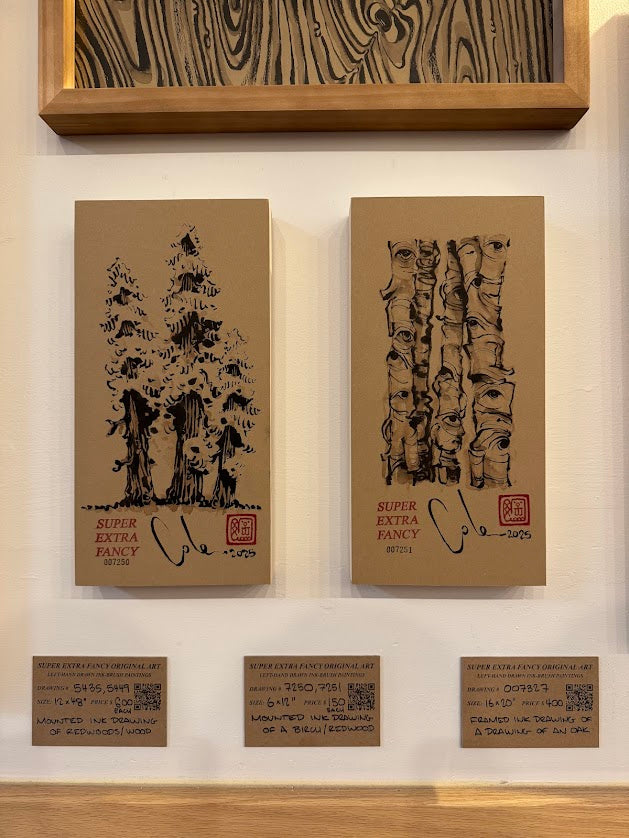 SUPER
EXTRA
FANCY
007250
Cole 2025
SUPER
EXTRA
FANCY
007251
Cole 2025
SUPER EXTRA FANCY ORIGINAL ART
LEFT-HAND DRAWN INK-BRUSH PAINTINGS
DRAWING # 5435, 5449
SIZE: 12×48" PRICE $ 600
EACH
MOUNTED INK DRAWING
OF REDWOODS/WOOD
SUPER EXTRA FANCY ORIGINAL ART
LEFT-HAND DRAWN INK-BRUSH PAINTINGS
DRAWING # 7250, 7251
SIZE: 6×12" PRICE $ 150
EACH
MOUNTED INK DRAWING
OF A BIRCH/REDWOOD
SUPER EXTRA FANCY ORIGINAL ART
LEFT-HAND DRAWN INK-BRUSH PAINTINGS
DRAWING # 007327
SIZE: 16×20" PRICE $ 400
FRAMED INK DRAWING OF
A DRAWING OF AN OAK